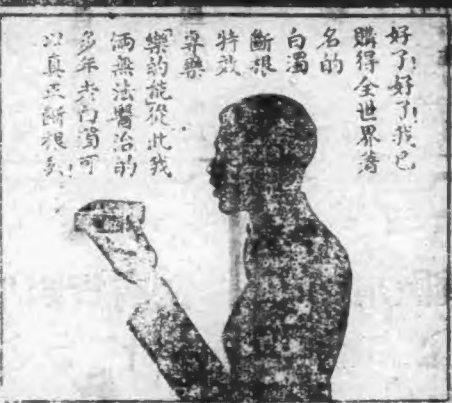 好了!好了!我已
購得全世界著
名的
白濁
斷根
特效
專藥
「樂的能」從此我
兩無法醫治的
多年老白濁可
以真正斷根矣!